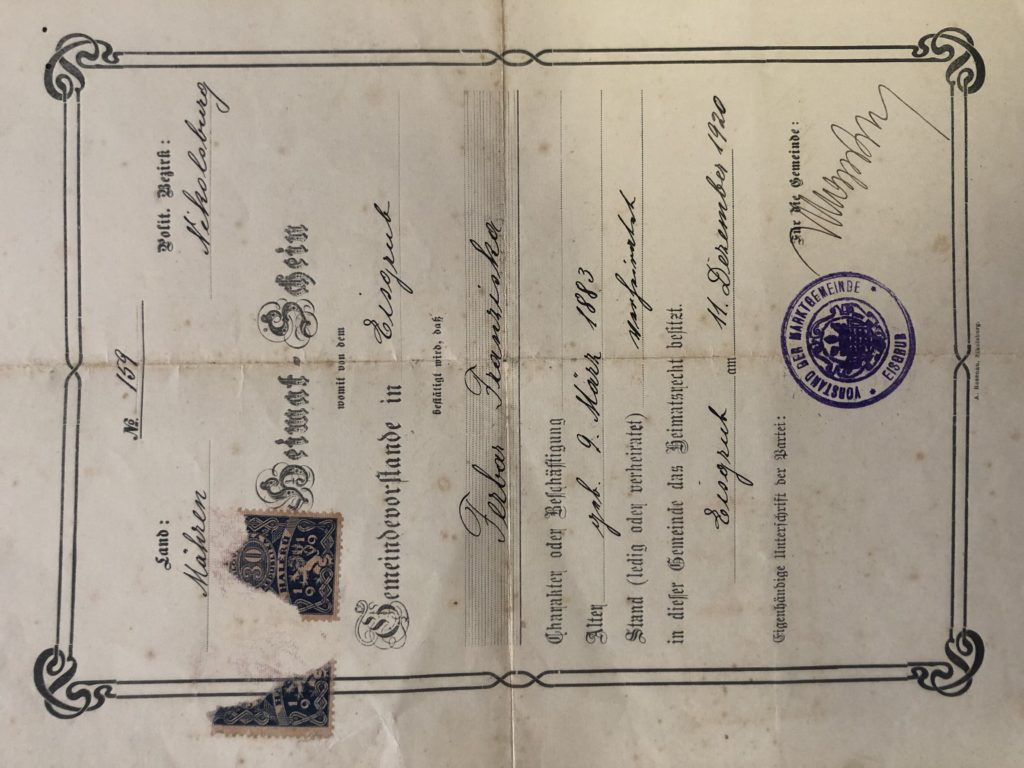 № 159
Land: Polit. Bezirk:
Mähren Nikolsburg
Heimat-Schein
womit von dem
Gemeindevorstande in Eisgrub
bestätigt wird, daß
Ferbar Franziska
Charakter oder Beschäftigung
Alter geb. 9. März 1883
Stand (ledig oder verheiratet) verheiratet
in dieser Gemeinde das Heimatsrecht besitzt.
Eisgrub am 11. Dezember 1920
Eigenhändige Unterschrift der Partei: Für die Gemeinde:
VORSTAND DER MARKTGEMEINDE
EISGRUB
30
HALÉŘŮ
1919